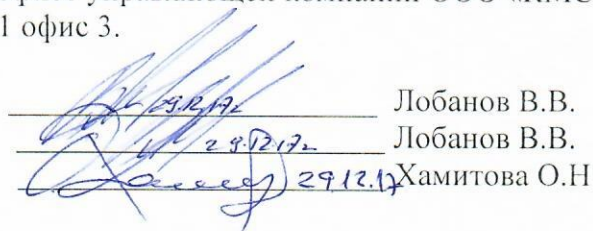 1 офис 3.
29.12.17г Лобанов В.В.
29.12.17г Лобанов В.В.
29.12.17 Хамитова О.Н